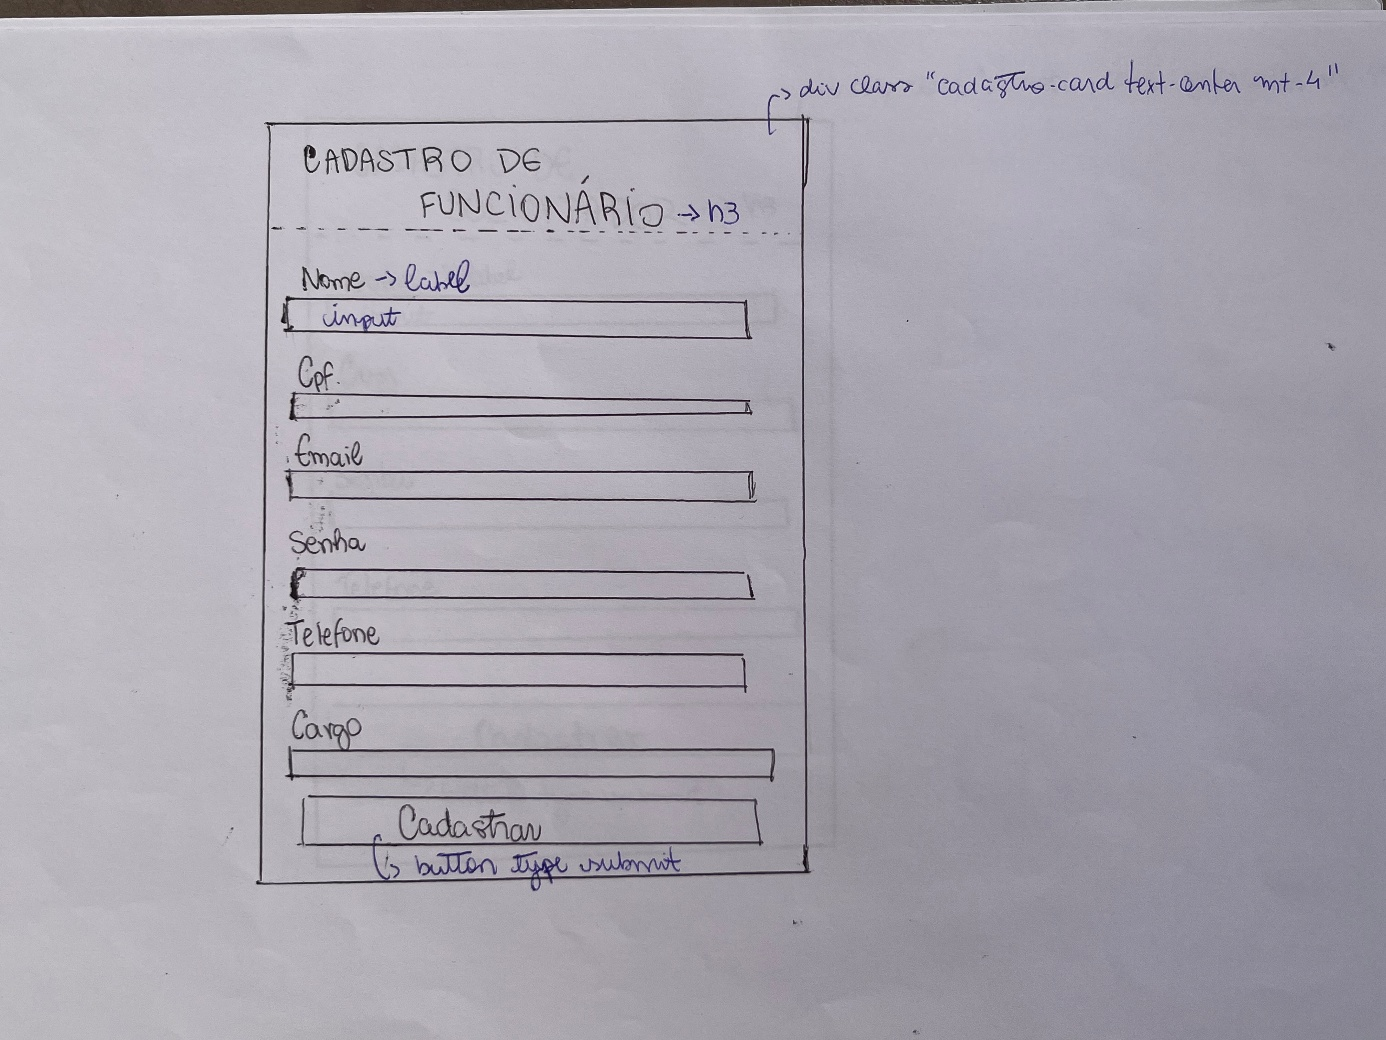 → div class "cadastro-card text-center mt-4"
CADASTRO DE
FUNCIONÁRIO → h3
Nome → label
input
Cpf.
Email
Senha
Telefone
Cargo
Cadastrar
↳ button type submit